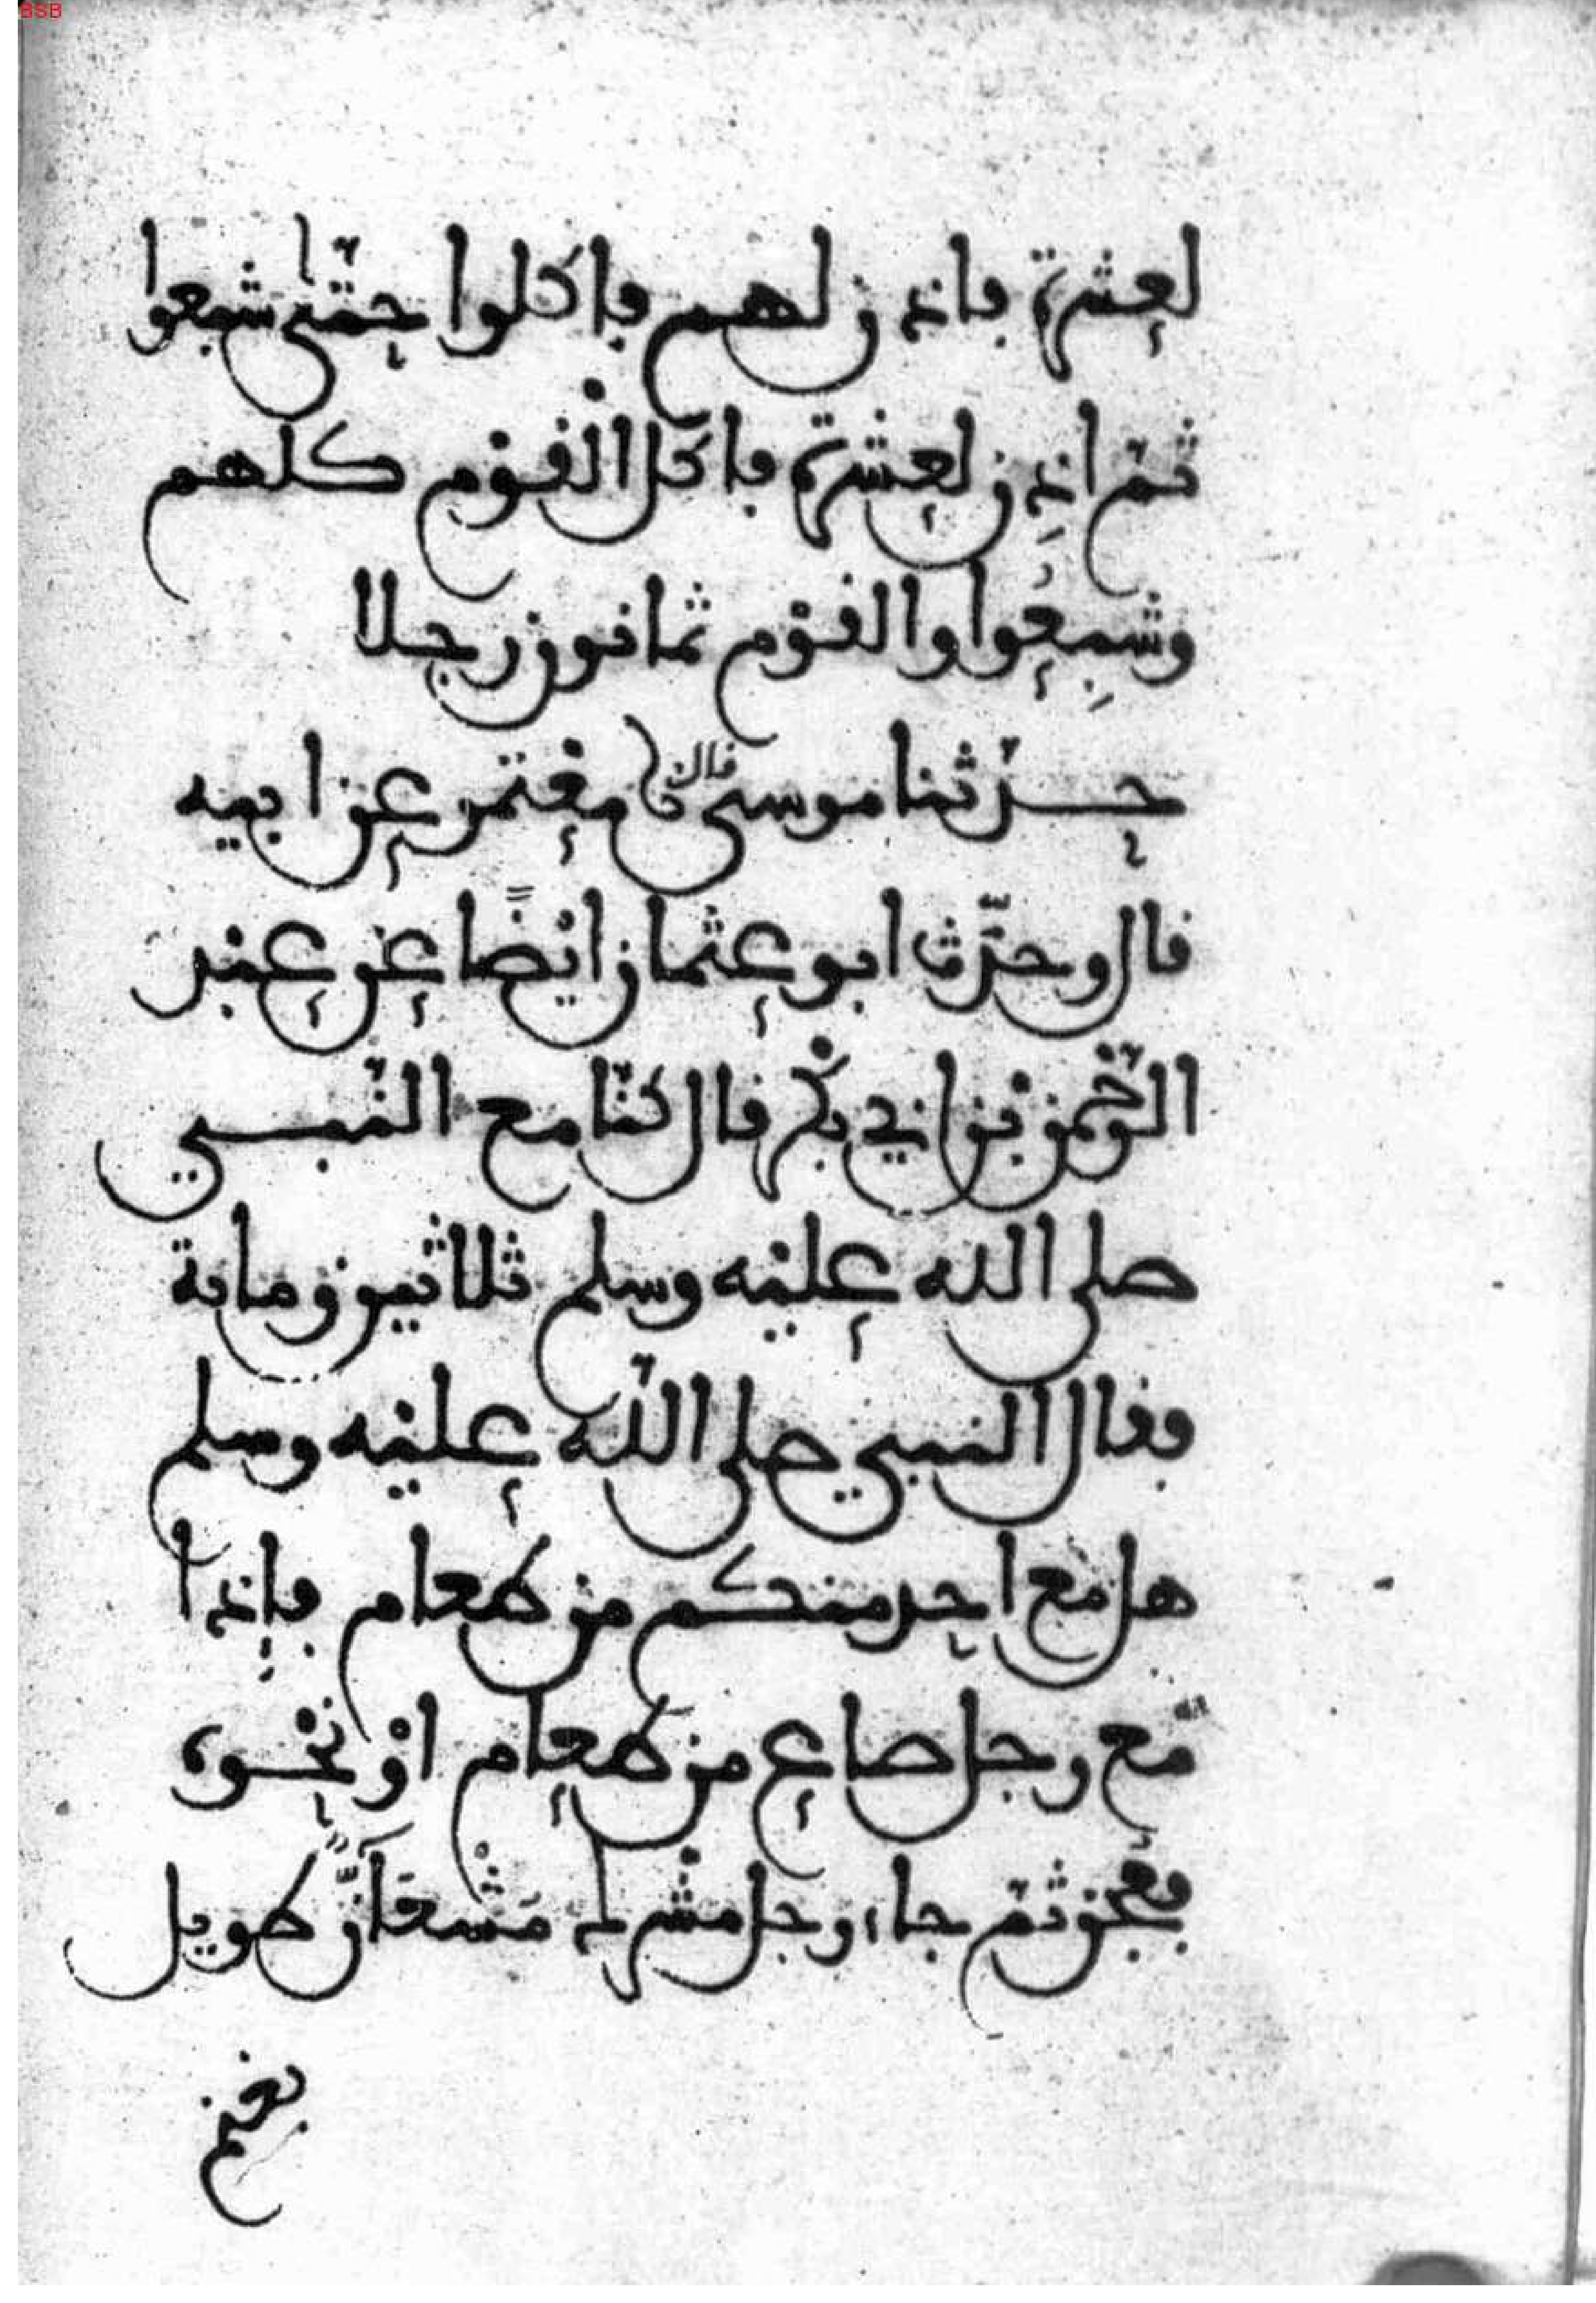 BSB
لعشرة فاذن لهم فاكلوا حتى شبعوا
ثمّ اذِن لعشرة فاكل القوْم كلهم
وشبِعُوا والقوْم ثمانون رجلا
حدّثنا موسى قال نا معْتمر عن ابيه
قال وحدّث ابو عثمان ايْضًا عن عبْد
الرّحْمن بْن ابي بكْر قال كنّا مع النّبي
صلى الله عليْه وسلم ثلاثين وماية
فقال النبي صلى اللّه عليْه وسلم
هل مع احد منكم من طعام فإذا
مع رجل صاع من طعام اوْ نحْوه
فعُجن ثمّ جاء رجل مشْرك مُشْعَانٌّ طويل
بغنم